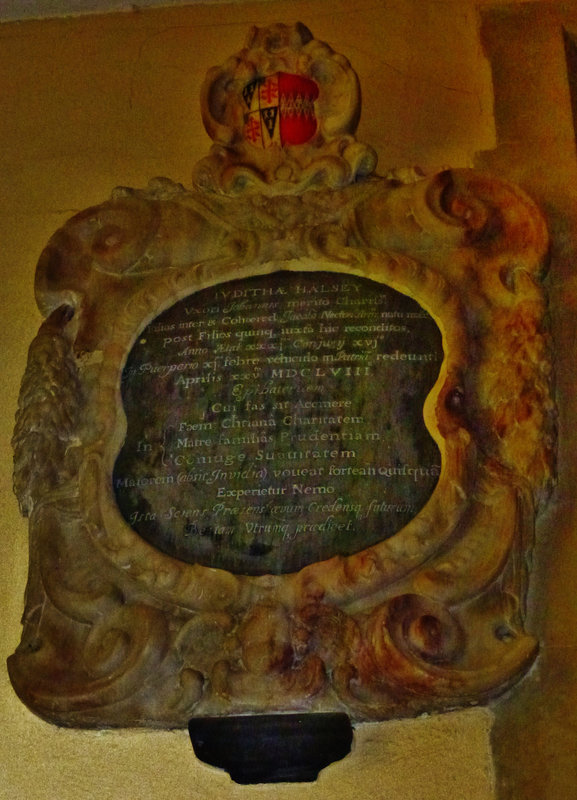 IVDITHÆ HALSEY
Vxori merito Chariss
Filius inter & Cohæred Jacobo Necton nata
post Filios quinq iuxta hic reconditos,
Anno Ætat Conjugy xvj
In Puerperio xj febre vehiculo in Patriā redeunti
Aprilis xxv MDCLVIII
Cui fas sit Accinere
Foem Chriana Charitatem
In Matre familias Prudentiam
Coniuge Suauitatem
Maiorem (absit Invidia) voueat fortean Quisquā
Experietur Nemo
Ista Sciens Præsens ævum Credensq futurum
Vtrumq prædicet.